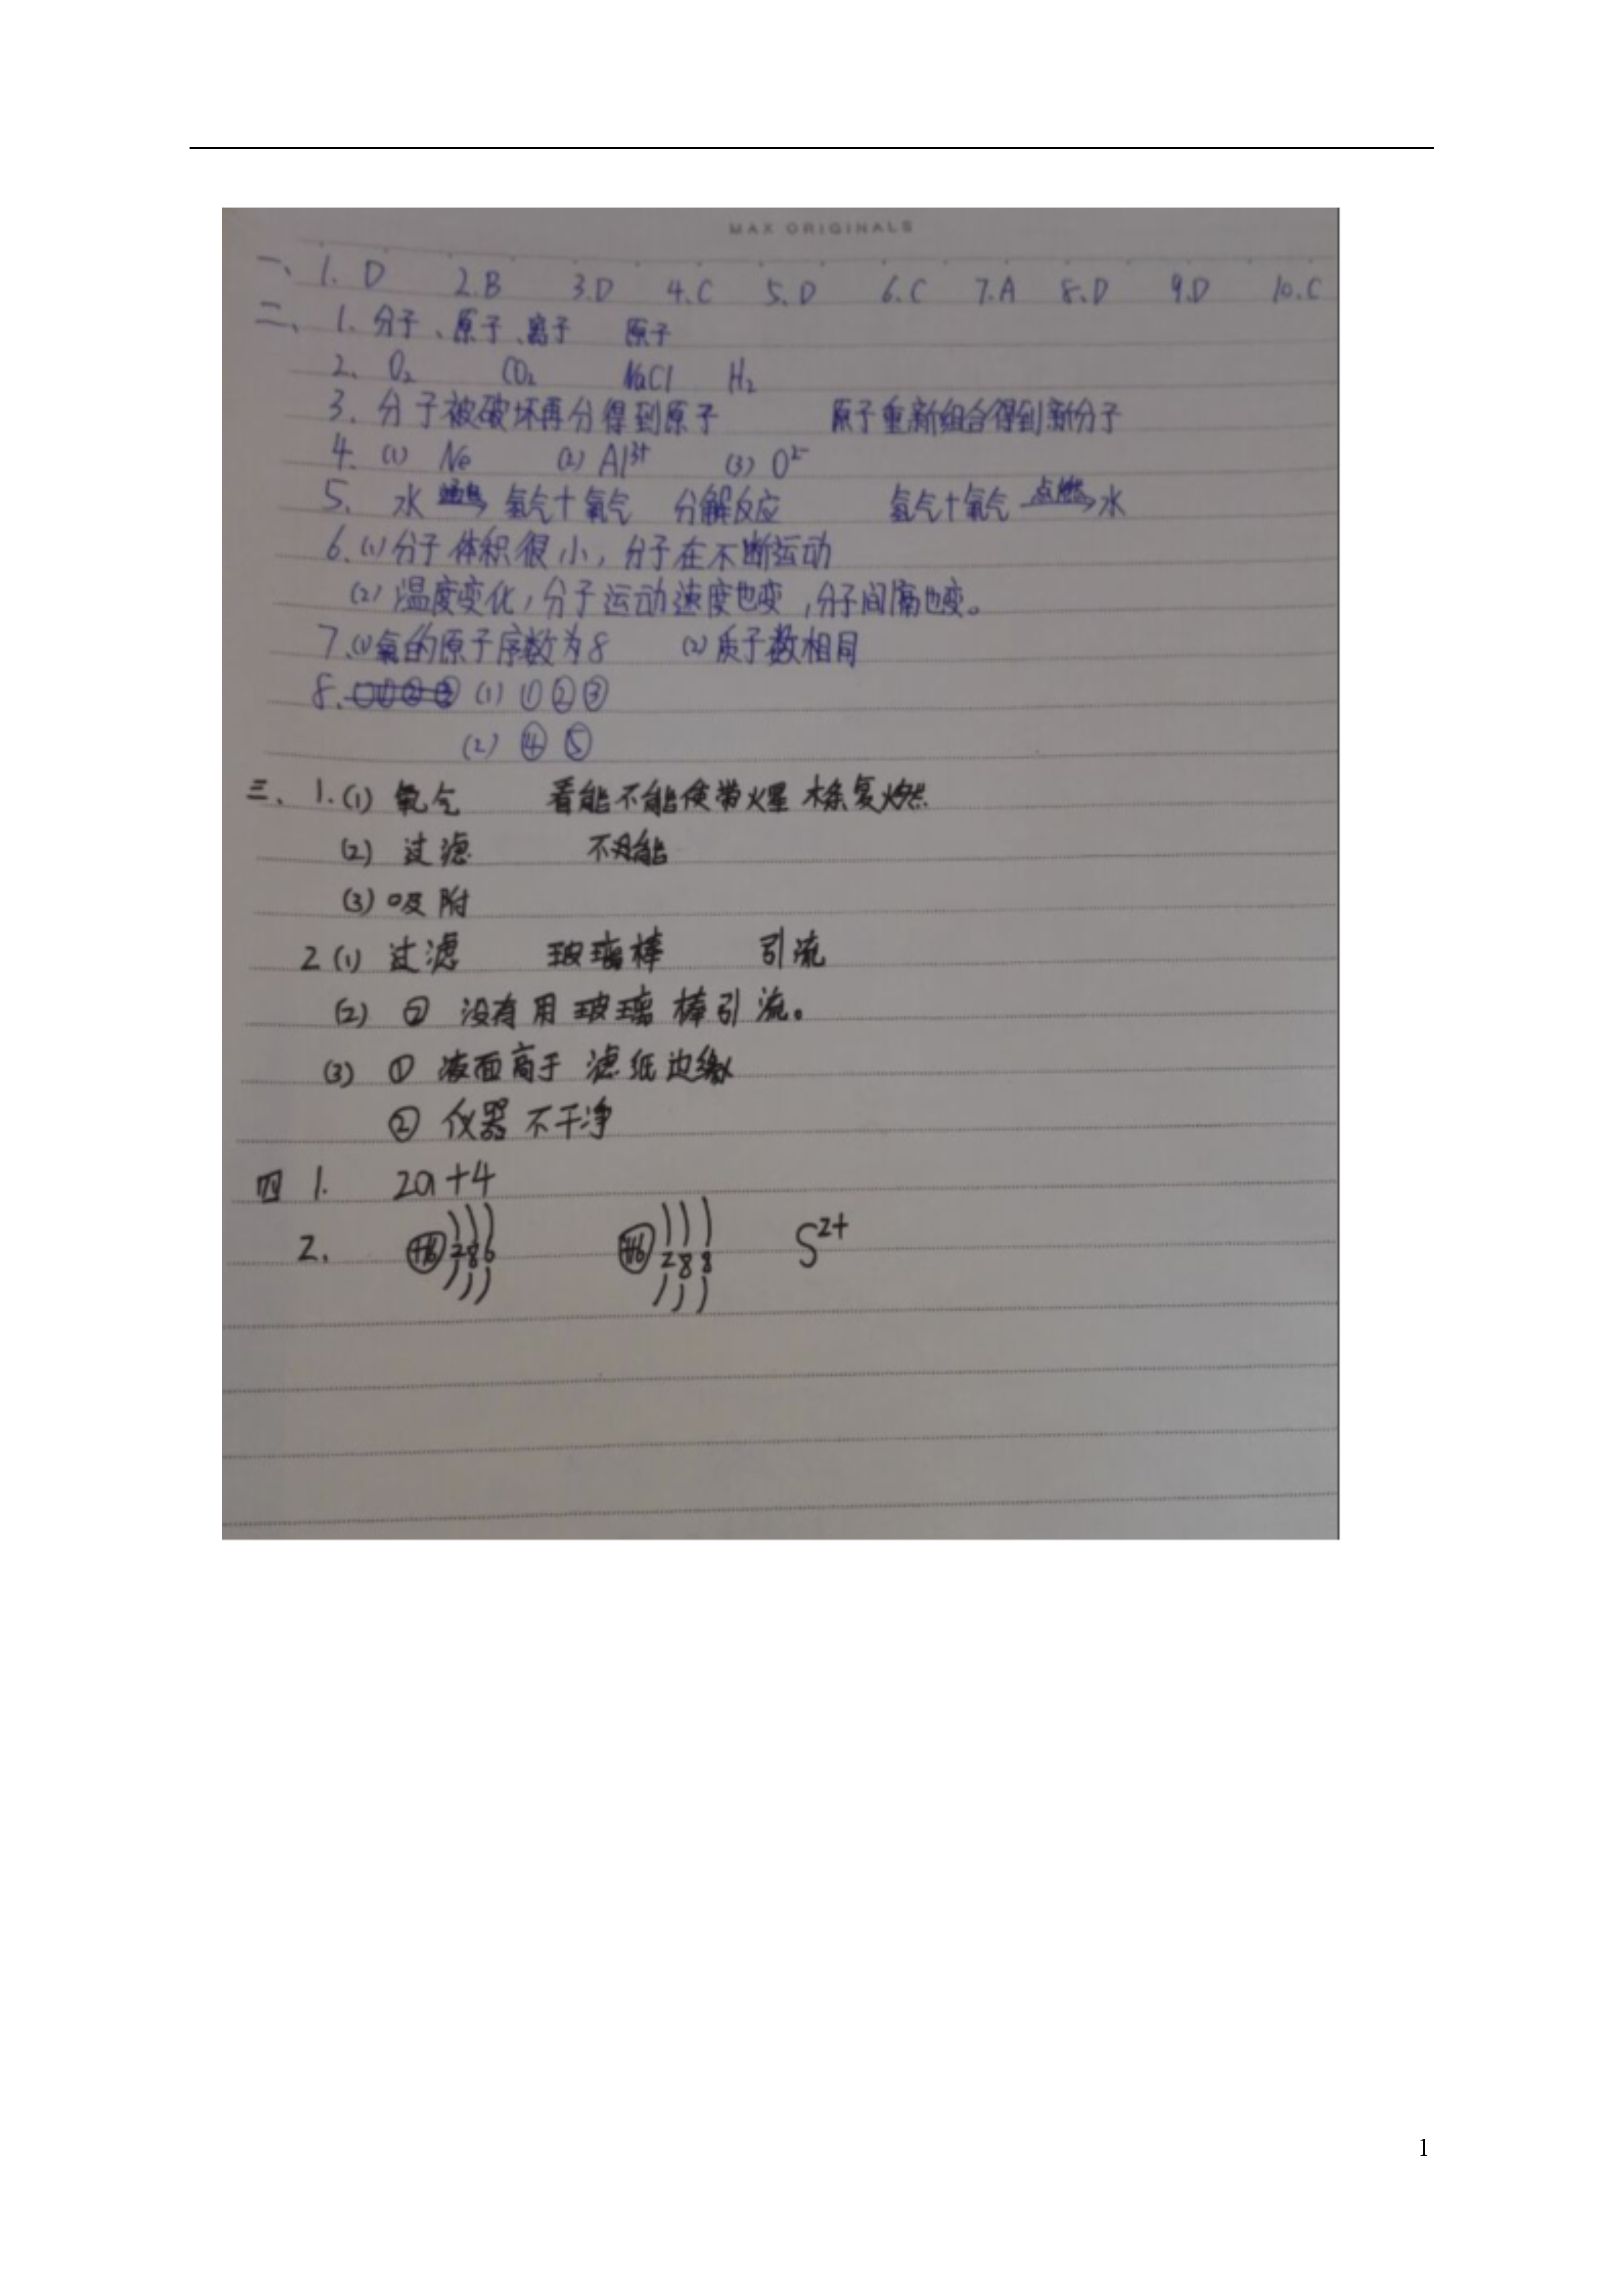 MAX ORIGINALS
一、1. D 2. B 3. D 4. C 5. D 6. C 7. A 8. D 9. D 10. C
二、1. 分子、原子、离子 原子
2、O₂ CO₂ NaCl H₂
3. 分子被破坏再分得到原子 原子重新组合得到新分子
4. (1) Ne (2) Al³⁺ (3) O²⁻
5. 水 通电→ 氢气+氧气 分解反应 氢气+氧气 点燃→ 水
6. (1) 分子体积很小，分子在不断运动
(2) 温度变化，分子运动速度也变，分子间隔也变。
7. (1) 氧的原子序数为8 (2) 质子数相同
8. (1) ①②③
(2) ④⑤
三、1. (1) 氧气 看能不能使带火星木条复燃
(2) 过滤 不能
(3) 吸附
2 (1) 过滤 玻璃棒 引流
(2) ② 没有用玻璃棒引流。
(3) ① 液面高于滤纸边缘
② 仪器不干净
四 1. 2a+4
2. +16 2 8 6 +16 2 8 8 S²⁺
1